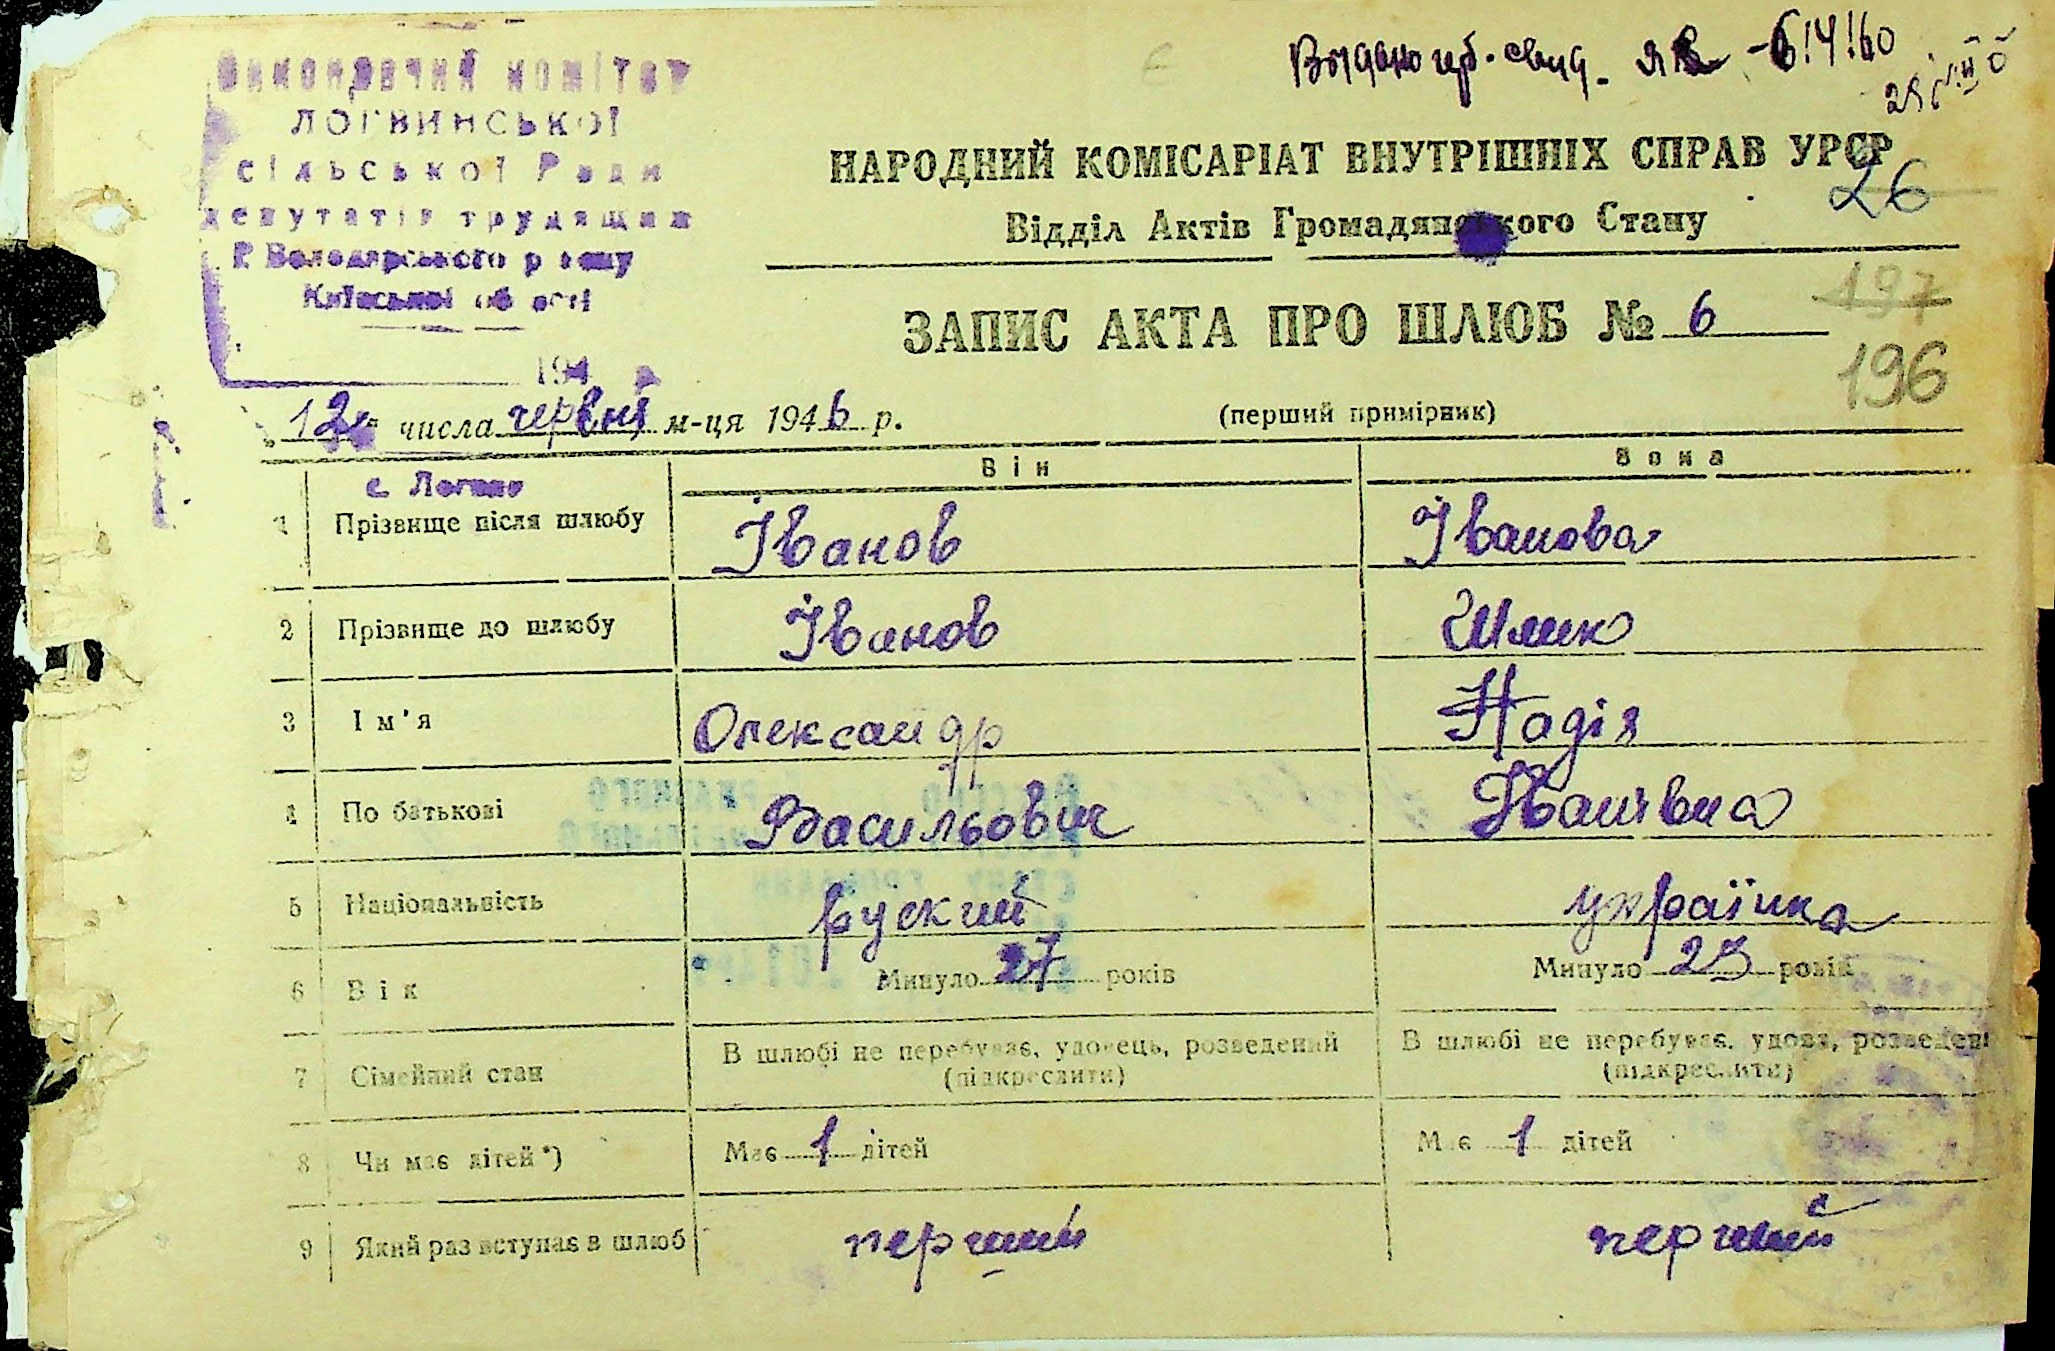 Виконавчий комітет
ЛОГВИНСЬКОЇ
сільської Ради
депутатів трудящих
Володарського р-ону
Київської області
194
Видано
-6/4/60
НАРОДНИЙ КОМІСАРІАТ ВНУТРІШНІХ СПРАВ УРСР
26
Відділ Актів Громадянського Стану
197
ЗАПИС АКТА ПРО ШЛЮБ № 6
196
„12" числа червня м-ця 1946 р.
(перший примірник)
Він Вона
с. Логвин
1 Прізвище після шлюбу Іванов Іванова
2 Прізвище до шлюбу Іванов Шлик
3 Ім'я Олександр Надія
4 По батькові Васильович Іванівна
5 Національність руский українка
6 Вік Минуло 27 років Минуло 23 років
7 Сімейний стан В шлюбі не перебуває, удовець, розведений В шлюбі не перебуває, удова, розведена
(підкреслити) (підкреслити)
8 Чи має дітей*) Має 1 дітей Має 1 дітей
9 Який раз вступає в шлюб перший перший